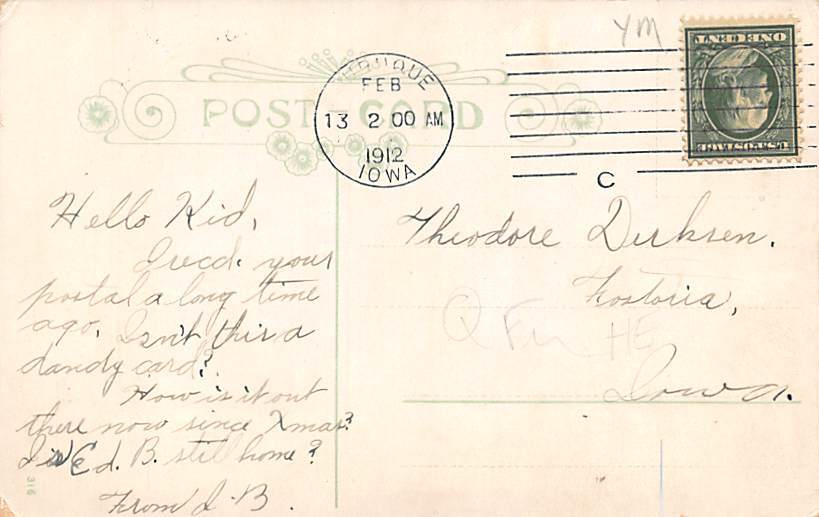 YM
POST-CARD
DUBUQUE
FEB
13 2 00 AM
1912
IOWA
C
ONE CENT
U.S. POSTAGE
Hello Kid,
I recd. your
postal a long time
ago. Isn't this a
dandy card?
How is it out
there now since Xmas?
Is Ed. B. still home?
From I. B.
Theodore Dirksen.
Fostoria,
Iowa.
316